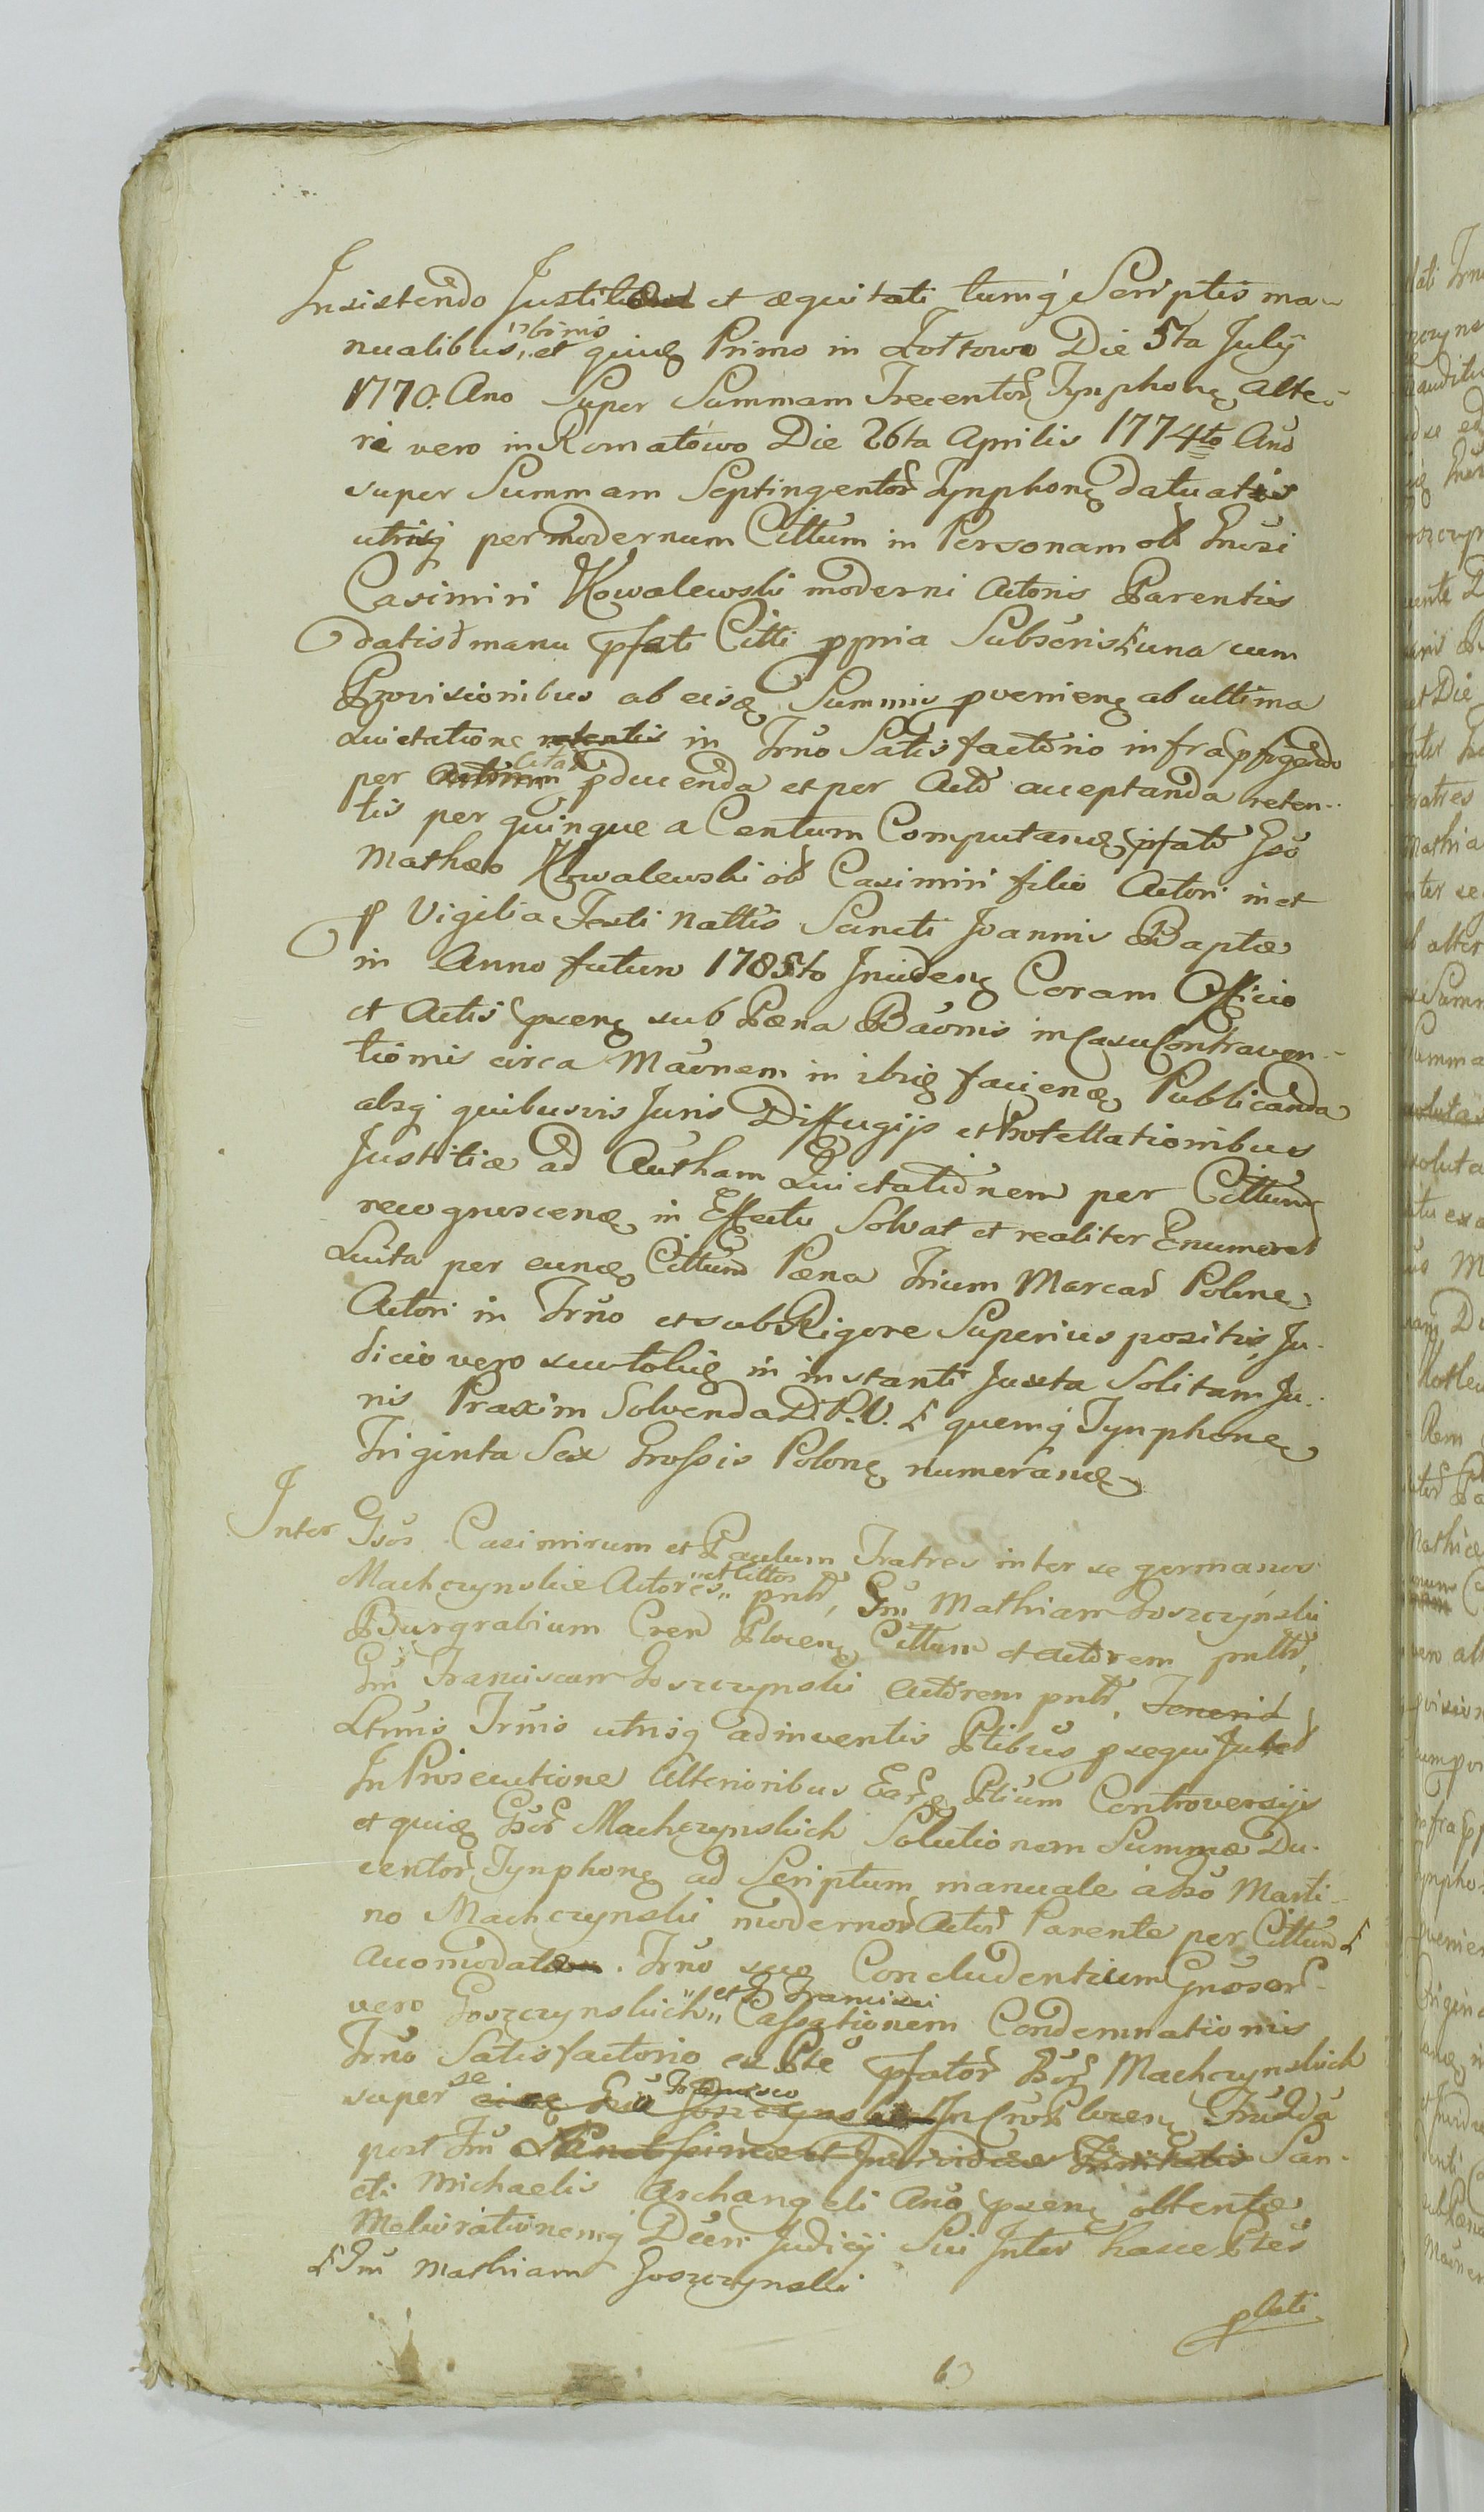 Insistendo Justitiæ et æquitati tumq Scriptis ma-
nualibus, binis et quiq Primo in Łottowo Die 5ta July
1770. Ano Super Summam Trecentor Tynphonq alte-
ri vero in Romatowo Die 26ta Aprilis 1774to Ano
super Summam Septingentor Tynphonq datuatis
utrisq per modernum Cittum in Personam olt Gnosi
Casimiri Kowalewski moderni Actoris Parentis
datis manu pfati Citti ppria Subscris una cum
Provisionibus ab eisq Summis pvenienq ab ultima
Quietatione retentis in Trno Satisfactorio infra pfigendo
per Actorem Citat pducenda et per Actor acceptanda reten-
tis per quinque a Centum Computanq pfato Gso
Mathæo Kowalewski olt Casimiri filio Actori in et
p Vigilia Festi Nattis Sancti Joannis Baptæ
in Anno futuro 1785to Incidenq Coram Officio
et Actis psenq sub Pæna Baonis in Casu Contraven-
tionis circa Maonem in ibiq facienq Publicanda
absq quibusvis Juris Diffugijs et Protellationibus
Justitiæ ad Autham Quietationem per Cittum
recognoscenq in Effectu Solvat et realiter Enumeret
Luita per eunq Cittum Pæna Trium Marcar Polone
Actori in Trno et sub Rigore Superius positis, Ju-
dicio vero sustoliq in instanti Juxta Solitam Ju-
ris Praxim Solvenda D. P. V. quemq Tynphonq
Triginta Sex Grossis Polonq numeranq
Inter Gsos Casimirum et Paulum Fratres inter se germanos
Machczynskie Actores et Cittos pntt, Gm Mathiam Goszczynski
Burgrabium Cren Plocenq Cittum et Actorem pntt,
Gm Franciscum Goszczynski Actorem pntt,
Ltrmis Trmis utrisq adinventis Ptibus psequi Jubet
In Prosecutione Ulterioribus Earq Ptium Controversijs
et quiq Gsor Machczynskich Solutionem Summæ Du-
centor Tynphonq ad Scriptum manuale a Gso Marti-
no Machczynski modernor Actor Parente per Cittum
Accomodat. Trno suq Concludentium Gnosor
vero Goszczynskich et Francisci Cassationem Condemnationis
Trno Satisfactorio ex Pte pfator Gsor Machczynskich
super se Francisco Goszczynski In Cro Plocenq Fundda
post Fm Sanctissimæ et Individuæ Trinitatis San-
cti Michaelis Archangeli Ano psenq obtentæ
Meliorationemq Decri Judicij Sui Inter hasce Ptes
Gm Mathiam Goszczynski
63